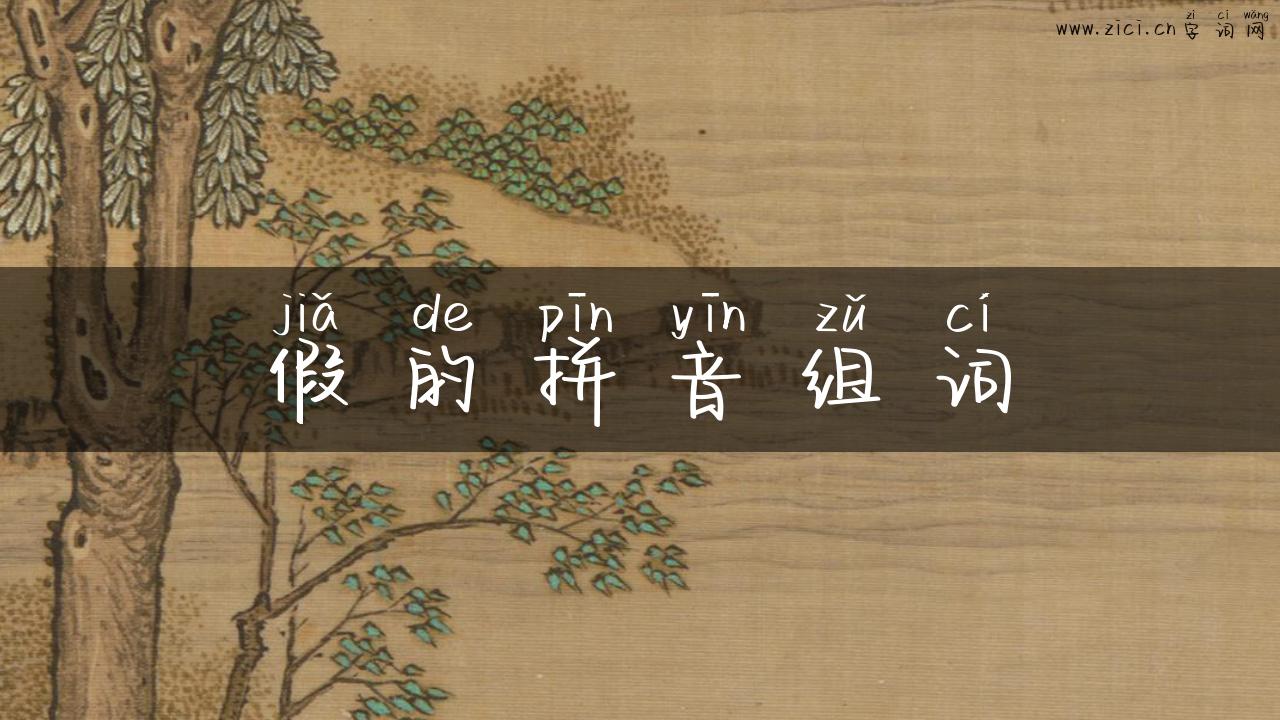 zì cí wǎng
www.zici.cn 字词网
jiǎ de pīn yīn zǔ cí
假的拼音组词